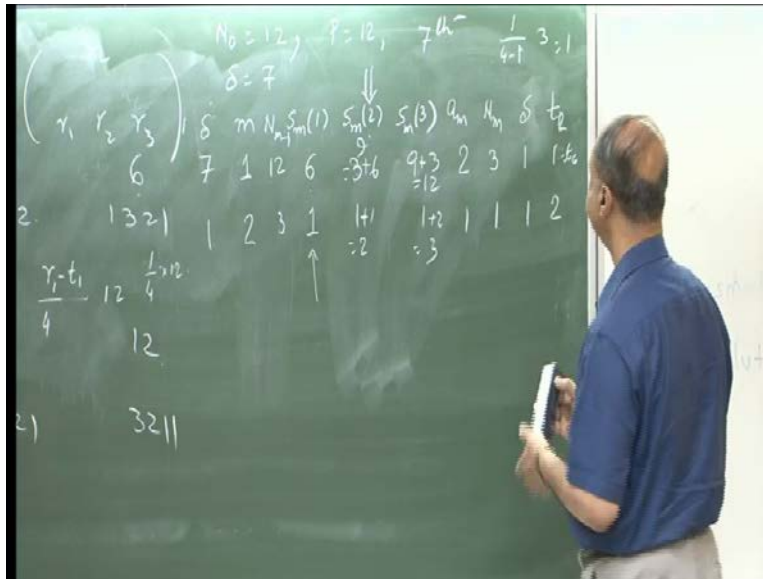 N₀ = 12, P = 12, 7th 1/(4-1) 3 = 1
δ = 7
r₁ r₂ r₃ δ m Nₘ₋₁ Sₘ(1) Sₘ(2) Sₘ(3) qₘ Nₘ δ t₂
9
6 7 1 12 6 =3+6 9+3 2 3 1 1
=12
2. 1321 1 2 3 1 1+1 1+2 1 1 1 2
=2 =3
(r₁-t₁)/4 12 1/4 × 12
12
21 3211